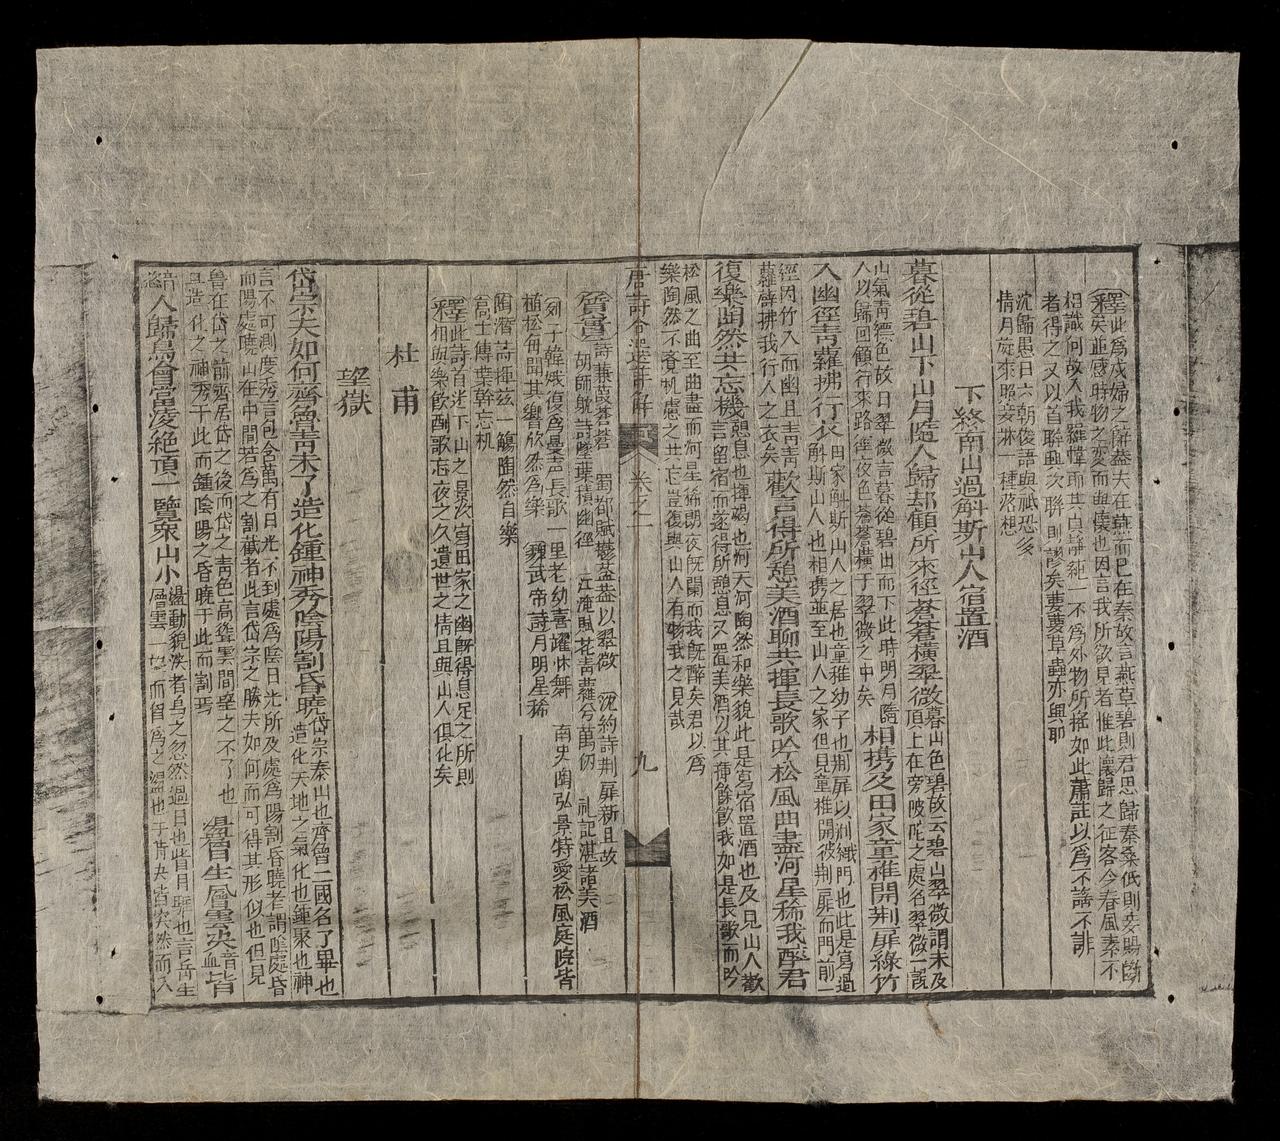 釋此為戍婦之辭蓋夫在燕而己在秦故言燕草碧則君思歸秦桑低則妾腸斷
矣並感時物之變而與懷也因言我所欲見者惟此懷歸之征客今春風素不
相識何故入我羅幃而其貞靜純一不為外物所搖如此蕭註以為不謠不誹
者得之又以首聯興次聯則謬矣蔓草蟲亦興耶
沈歸愚曰六朝俊語與祇恐多
情月旋來照妾牀一種落想
下終南山過斛斯山人宿置酒
暮從碧山下山月隨人歸却顧所來徑蒼蒼橫翠微暮山色碧故云碧山翠微謂未及頂上在旁陂陀之處名翠微一說
山氣青縹色故曰翠微言暮從碧山而下此時明月隨人以歸回顧行來路徑之色蒼蒼橫于翠微之中矣相携及田家童稚開荆扉綠竹
入幽徑青蘿拂行衣田家斛斯山人之居也童稚幼子也荆扉以荆織門也此是寫過斛斯山人也相携並至山人之家但見童稚開彼荆扉而門前一
徑因竹入而幽且青青蘿薜拂我行人之衣矣歡言得所憩美酒聊共揮長歌吟松風曲盡河星稀我醉君
復樂陶然共忘機憩息也揮竭也河天河陶然和樂貌此是寫宿置酒也及見山人歡言留宿而遂得所憩息又置美酒以其揮餘飲我如是長歌而吟
松風之曲至曲盡而河星稀朗夜既闌而我既醉矣君以為
樂陶然不賫机慮之共忘豈復與山人有物我之見哉
唐詩合選詳解 卷之一 九
質實詩蒹葭蒼蒼 蜀都賦鬱葐葐以翠微 沈約詩荆扉新且故
胡師耽詩墜葉積幽徑 江淹賦花青蘿兮萬仞 禮記湛諸美酒
列子韓娥復為曼聲長歌一里老幼喜躍忭舞 南史陶弘景特愛松風庭院皆
植松每聞其響欣然為樂 魏武帝詩月明星稀
陶潛詩揮茲一觴陶然自樂
高士傳葉幹忘机
釋此詩首述下山之景次寫田家之幽既得息足之所則
相與樂飲酣歌忘夜之久遺世之情且與山人俱化矣
杜甫
望嶽
岱宗夫如何齊魯青未了造化鍾神秀陰陽割昏曉岱宗泰山也齊魯二國名了畢也造化天地之氣化也鍾聚也神
言不可測度秀言包含萬有日光不到處為陰日光所及處為陽割昏曉者謂陰處昏
而陽處曉山在中間若為之割截者此言岱宗之勝夫如何而可得其形似也但見
魯在岱之前齊居岱之後而岱之青色高聳雲間望之不了也
且造化之神秀于此而鍾陰陽之昏曉于此而割焉盪胷生層雲決眥
入歸鳥會當淩絕頂一覽衆山小盪動貌決者鳥之忽然過目也眥目厓也言岳生層雲一如而胷為之盪也于眥决皆突然而入